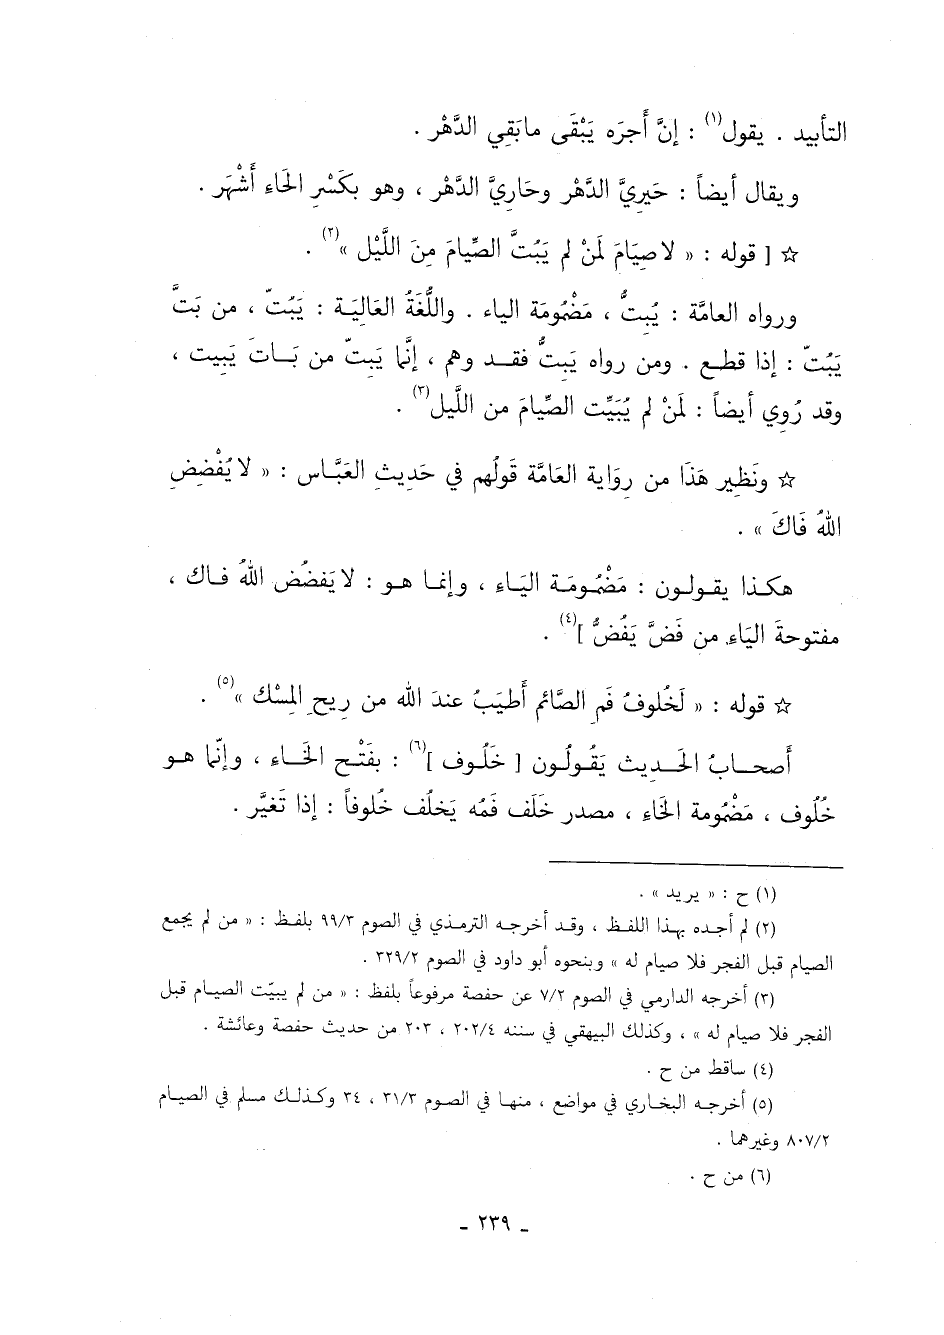 التأبيد . يقول(١) : إنَّ أَجرَه يَبْقَى مابَقِي الدَّهْر .
ويقال أيضاً : حَيريَّ الدَّهْر وحَاريَّ الدَّهْر ، وهو بكَسْرِ الحَاءِ أَشْهَر .
☆ [ قوله : « لاصِيَامَ لَمنْ لم يَبُتَّ الصِّيامَ مِنَ اللَّيْل »(٢) .
ورواه العامَّة : يُبِتُّ ، مَضْمُومَة الياء . واللُّغَةُ العَالِيَة : يَبُتّ ، من بَتَّ
يَبُتّ : إذا قطـع . ومن رواه يَبِتُّ فقـد وهم ، إنَّما يَبِتّ من بَـاتَ يَبِيت ،
وقد رُوِي أيضاً : لَمنْ لم يُبَيِّت الصِّيامَ من اللَّيل(٣) .
☆ ونَظِير هَذَا من رِوَاية العَامَّة قَولُهم في حَدِيثِ العَبَّاس : « لا يُفْضِضِ
اللهُ فَاكَ » .
هكـذا يقـولـون : مَضْمُـومَـة اليَـاءِ ، وإنمـا هـو : لا يَفضُض اللهُ فـاك ،
مفتوحةَ اليَاءِ من فَضَّ يَفُضُّ ](٤) .
☆ قوله : « لَخُلُوفُ فَمِ الصَّائم أَطيَبُ عندَ الله من رِيحِ المِسْك »(٥) .
أَصحـابُ الحَديث يَقُولُون [ خَلُوف ](٦) : بفَتْـح الخَـاء ، وإنّما هـو
خُلُوف ، مَضْمُومة الخَاء ، مصدر خَلَف فَمُه يَخلُف خُلوفاً : إذا تَغيَّر .
(١) ح : « يريد » .
(٢) لم أجده بهذا اللفظ ، وقد أخرجه الترمذي في الصوم ٩٩/٣ بلفظ : « من لم يجمع
الصيام قبل الفجر فلا صيام له » وبنحوه أبو داود في الصوم ٣٢٩/٢ .
(٣) أخرجه الدارمي في الصوم ٧/٢ عن حفصة مرفوعاً بلفظ : « من لم يبيّت الصيـام قبل
الفجر فلا صيام له » ، وكذلك البيهقي في سننه ٢٠٢/٤ ، ٢٠٣ من حديث حفصة وعائشة .
(٤) ساقط من ح .
(٥) أخرجـه البخـاري في مواضع ، منهـا في الصوم ٣١/٣ ، ٣٤ وكـذلـك مسلم في الصيـام
٨٠٧/٢ وغيرهما .
(٦) من ح .
ـ ٢٣٩ ـ